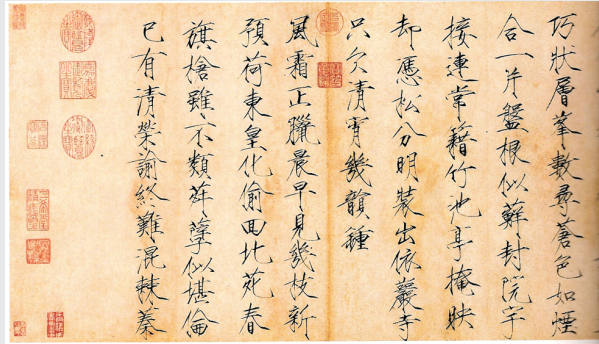 巧狀層峯數尋蒼色如煙
合一片盤根似蘚封院宇
接連常籍竹池亭掩映
却憑松分明裝出依巖寺
只欠清宵幾韻鍾
風霜正臘晨早見幾枝新
預荷東皇化偷囬北苑春
旗槍雖不類荈孽似堪倫
已有清榮諭終難混棘蓁